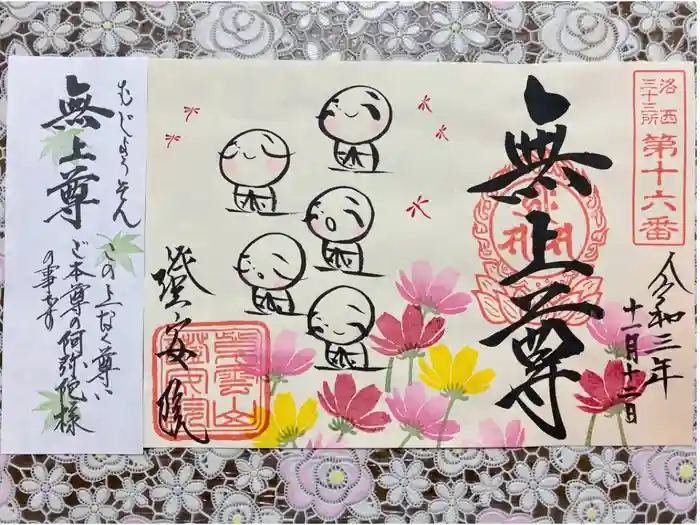 洛西
三十三所
第十六番
令和三年
十一月十二日
無上尊
證安院
むじょうそん
無上尊
この上なく尊い
ご本尊の阿弥陀様
の事です